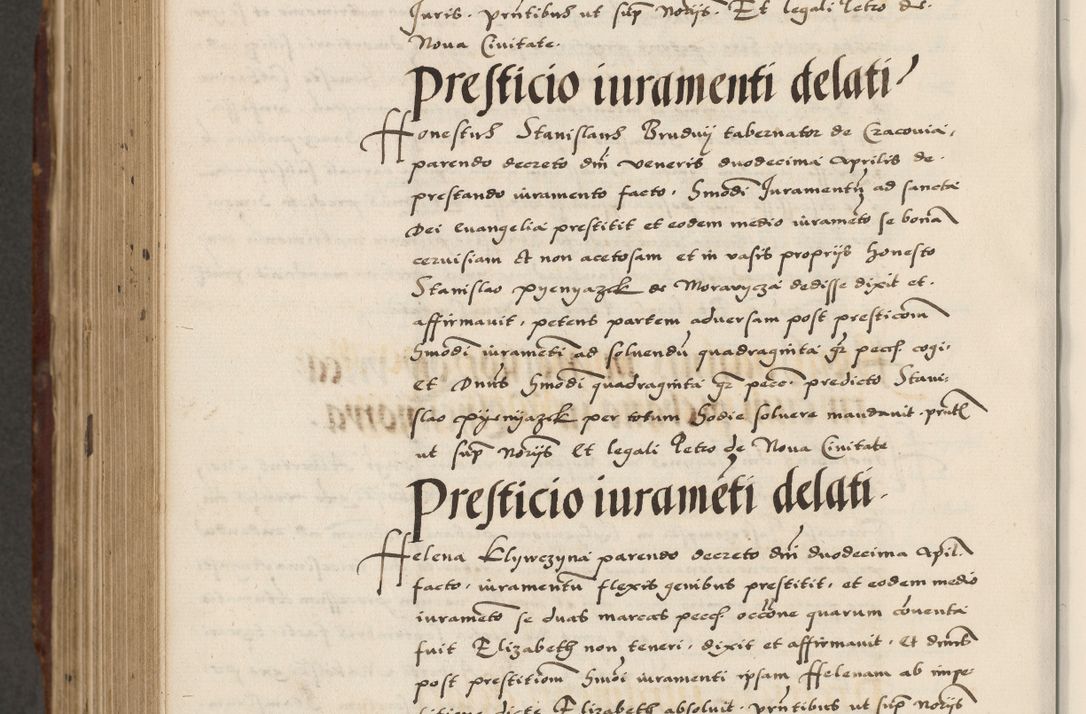 Juris. pntibus ut sup Norijs. Et legali Petro de.
Nova Civitate.
Presticio iuramenti delati
Honestus Stanislaus Bruduij tabernator de Cracovia,
parendo decreto dni veneris duodecima Aprilis de.
prestando iuramento facto. Hmodi Juramentu ad sancta
Dei Evangelia prestitit et eodem medio iurameto se bona
cervisiam et non acetosam et in vasis proprijs honesto
Stanislao Pyenyazek de Moravycza dedisse dixit et.
affirmavit, petens partem adversam post presticom
hmodi iurameti ad solvendu quadraginta gr pecc. cogi.
Et Dnus hmodi quadraginta gr pecc. predicto Stani-
slao Pyenyazek per totum hodie solvere mandavit. pntib
ut sup Norijs Et legali Petro de Nova Civitate
Presticio iurameti delati.
Helena Klywczyna parendo decreto dni duodecima April.
facto. iuramentu flexis genibus prestitit, et eodem medio
iurameto se duas marcas pecc. occone quarum coventa
fuit Elizabeth non teneri. dixit et affirmavit. Et dnus
post prestitiom hmoi iuramenti ipsam Helenam ab impe
titione dicte Elizabeth absolvit. pntibus ut sup Norijs